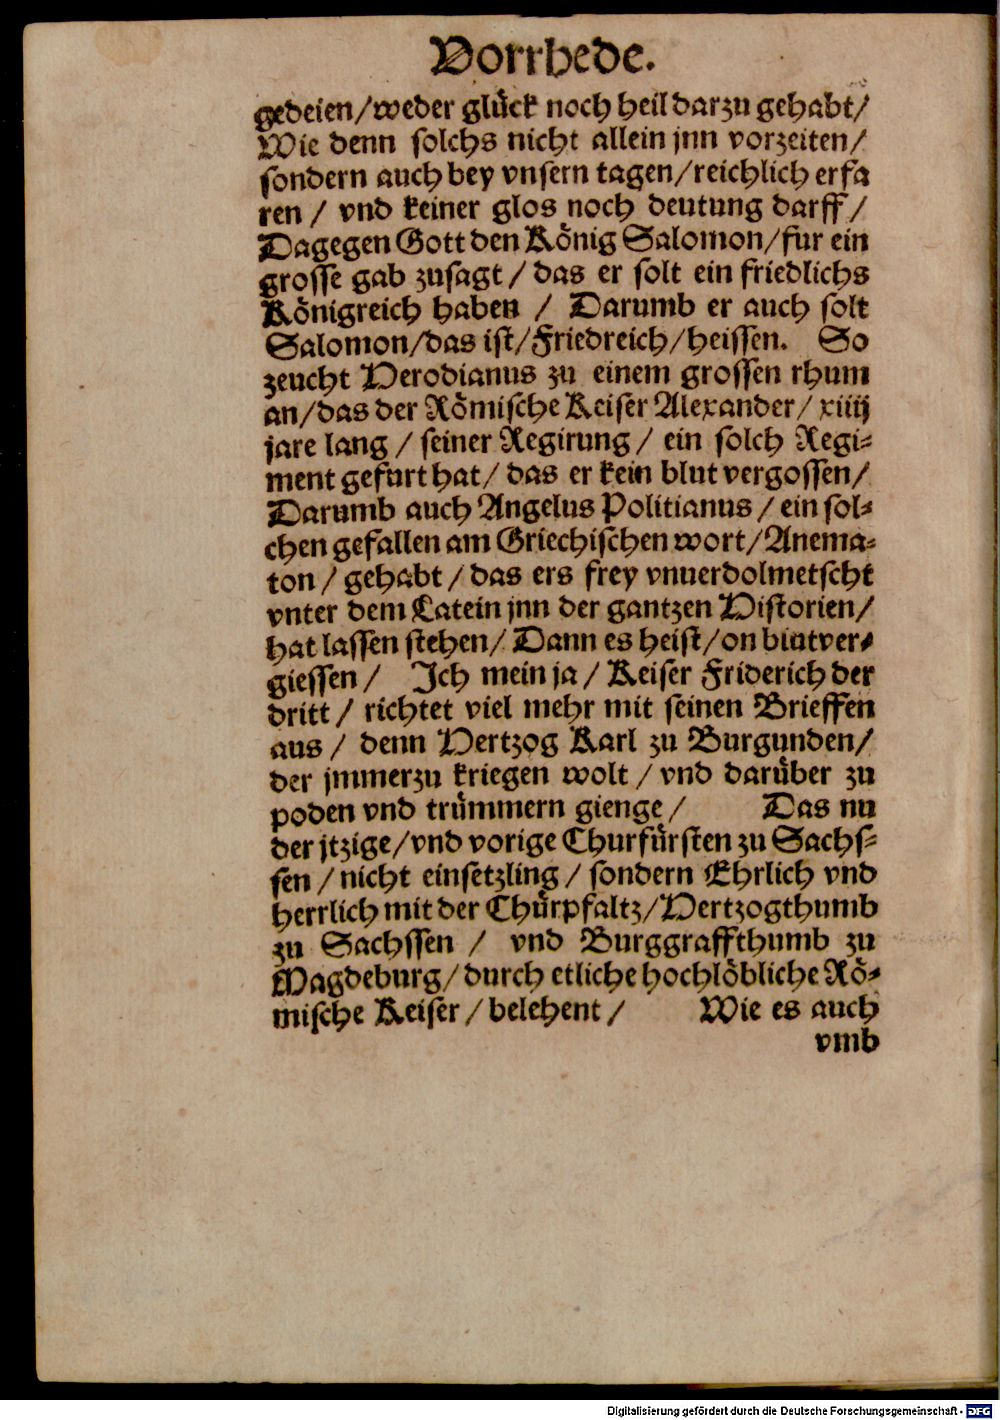 Vorrhede.
gedeien/weder glück noch heil darzu gehabt/
Wie denn solchs nicht allein jnn vorzeiten/
sondern auch bey vnsern tagen/reichlich erfa
ren / vnd keiner glos noch deutung darff/
Dagegen Gott den König Salomon/fur ein
grosse gab zusagt / das er solt ein friedlichs
Königreich haben / Darumb er auch solt
Salomon/das ist/Friedreich/heissen. So
zeucht Herodianus zu einem grossen rhum
an/das der Römische Keiser Alexander/ xiiij
jare lang / seiner Regirung / ein solch Regi-
ment gefurt hat/ das er kein blut vergossen/
Darumb auch Angelus Politianus / ein sol-
chen gefallen am Griechischen wort/Anema-
ton / gehabt / das ers frey vnuerdolmetscht
vnter dem Latein jnn der gantzen Historien/
hat lassen stehen/ Dann es heist/on blutver-
giessen / Ich mein ja / Keiser Friderich der
dritt / richtet viel mehr mit seinen Brieffen
aus / denn Hertzog Karl zu Burgunden/
der jmmerzu kriegen wolt / vnd darüber zu
poden vnd trümmern gienge / Das nu
der jtzige/vnd vorige Churfürsten zu Sachs-
sen / nicht einsetzling / sondern Ehrlich vnd
herrlich mit der Chürpfaltz/Hertzogthumb
zu Sachssen / vnd Burggraffthumb zu
Magdeburg/durch etliche hochlöbliche Rö-
mische Keiser / belehent / Wie es auch
vmb
Digitalisierung gefördert durch die Deutsche Forschungsgemeinschaft - DFG